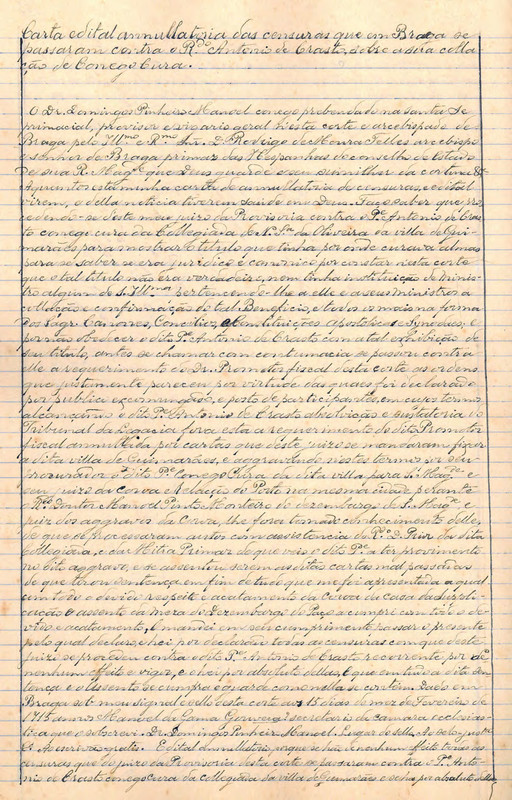 Carta edital annullatoria das censuras que em Braga se
passaram contra o R.do Antonio de Crasto, sobre a sua colla-
ção de Conego Cura.
O Dr. Domingos Pinheiro Manoel conego prebendado na santa Se
primacial, provisor e vigario geral n'esta corte e arcebispado de
Braga pelo Ill.mo e R.mo Snr. D. Rodrigo de Moura Telles arcebispo
e senhor de Braga primaz das Hespanhas do conselho de Estado
de sua R. Mag.e que Deus guarde e seu sumilher da cortina &c
A quantos esta minha carta de annullatoria de censuras, e edital
virem, e della noticia tiverem saude em Deus. Faço saber que pro-
cedendo-se deste meu juizo da Provisoria contra o P.e Antonio de Cras-
to conego cura da Collegiada de N. Sr.a da Oliveira da villa de Gui-
marães para mostrar o titulo que tinha por onde curava almas
para se saber se era juridico e canonico por constar nesta corte
que o tal titulo não era verdadeiro, nem tinha instituição de minis-
tro algum de S. Ill.ma pertencendo-lhe a elle e a seus ministros a
collação e confirmação do tal Beneficio, e todos os mais na forma
dos Sagr. Canones, Concilios, Constituições apostolicas e Synodaes, e
por não obedecer o dito P.e Antonio de Crasto com a tal exhibição de
seu titulo, antes se chamar com contumacia se passou contra
elle a requerimento do Dr. Promotor fiscal desta corte as ordens
que justamente pareceu por virtude das quaes foi declarado
por publico excommungado, e posto de participantes, em cujos termos
alcançou o dito P.e Antonio de Crasto absolvição e sustatoria do
Tribunal da Legacia fora esta a requerimento do dito Promotor
fiscal annullada por cartas que deste juizo se mandaram fixar
a dita villa de Guimarães, e aggravando nestes termos por seu
procurador o dito P.e Conego Cura da dita villa para S. Mag.de e
seu juizo da Coroa e Relação do Porto na mesma cidade perante
o R.do Doutor Manoel Pinto Monteiro do dezembargo de S. Mag.de e
juiz dos aggravos da Coroa, lhe fora tomado conhecimento delles
de que se processaram autos com assistencia do R.do D. Prior da dita
Collegiada, e da Mitra Primaz de que veio o dito P.e a ter provimento
no dito aggravo, e se assentou serem as ditas cartas mal passadas
de que tirou sentença em fim de tudo que me foi apresentada a qual
com todo o devido respeito e acatamento da Coroa da casa da suppli-
cação e assento da meza do Dezembargo do Paço a cumpri com todo o de-
vido acatamento, e mandei em seu cumprimento passar o presente
pelo qual declaro, e hei por declaradas todas as censuras com que deste
juizo se procedeu contra o dito P.e Antonio de Crasto recorrente, por de
nenhum effeito e vigor, e o hei por absoluto dellas, e que em tudo a dita sen-
tença e o assento se cumpra e guarde como nella se contém. Dado em
Braga sob meu signal e sello desta corte aos 15 dias do mez de Fevereiro de
1715 annos Manoel da Gama Gouveia secretario da camara ecclesias-
tica que o sobscrevi. Dr. Domingos Pinheiro Manoel. Lugar do sello. Ao sello, pg.
Edital annullatorio porque se hão de nenhum effeito todas as
censuras que do juizo da Provisoria desta corte se passaram contra o P.e Anto-
nio de Crasto conego cura da collegiada da villa de Guimarães e se ha por absoluto dellas